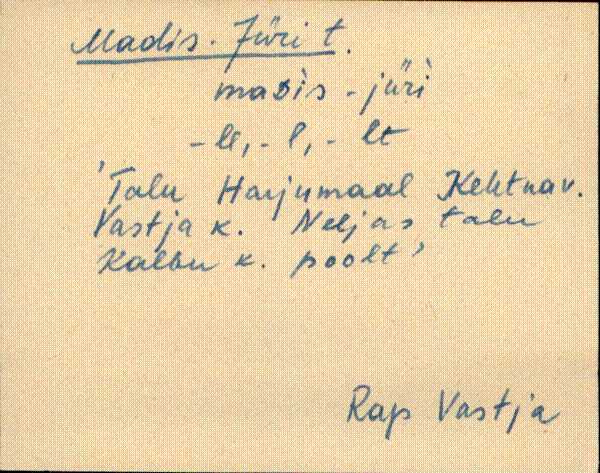 Madis-Jüri t.
maᴅìs - jüri̇̀
-le, -l, -lt
'Talu Harjumaal Kehtnav.
Vastja k. Neljas talu
Kalbu k. poolt'
Rap Vastja